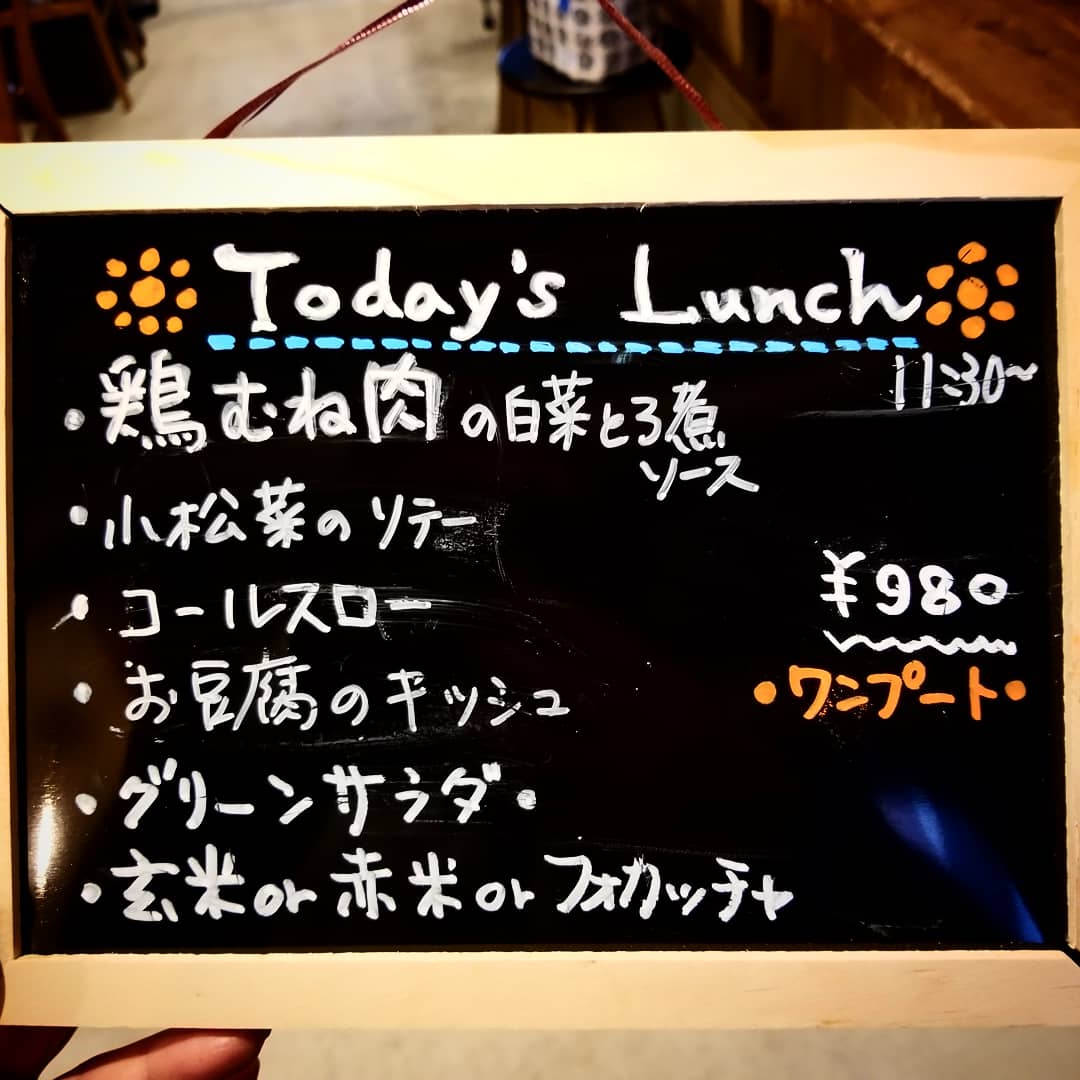 Today's Lunch
11:30~
・鶏むね肉の白菜とろ煮
ソース
・小松菜のソテー
・コールスロー
¥980
・お豆腐のキッシュ
・ワンプート・
・グリーンサラダ・
・玄米or赤米orフォカッチャ